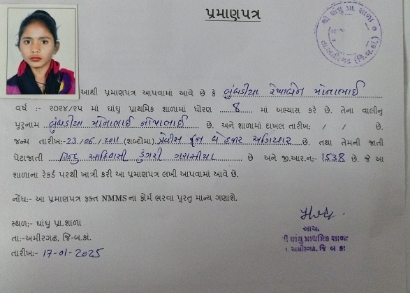 પ્રમાણપત્ર
આથી પ્રમાણપત્ર આપવામાં આવે છે કે બુંબડીયા રેખાબેન મોનાભાઈ
વર્ષ :- ૨૦૨૪/૨૫ માં ઘાંઘુ પ્રાથમિક શાળામાં ધોરણ 8 માં અભ્યાસ કરે છે. તેના વાલીનું
પુરુનામ બુંબડીયા મોનાભાઈ છે. અને શાળામાં દાખલ તારીખ: / / છે.
જન્મ તારીખ:- 23/06/ (શબ્દોમાં) ત્રેવીસ જૂન બે હજાર અગિયાર છે. તથા તેમની જાતી
પેટાજાતી હિન્દુ આદિવાસી ડુંગરી ગરાસીયા છે અને જી.આર.નં:- 1538 છે. જે આ
શાળાના રેકર્ડ પરથી ખાત્રી કરી આ પ્રમાણપત્ર લખી આપવામાં આવે છે.
નોંધ:- આ પ્રમાણપત્ર ફક્ત NMMS ના ફોર્મ ભરવા પુરતું માન્ય ગણાશે.
સ્થળ:- ઘાંઘુ પ્રા.શાળા
તા:-અમીરગઢ, જિ-બ.કાં.
તારીખ:- 17-01-2025
આચાર્ય,
શ્રી ઘાંઘુ પ્રાથમિક શાળા
તા. અમીરગઢ, જિ. બ.કાં